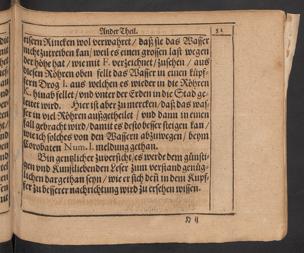 Ander Theil.
eisern Rincken wol verwahret / daß sie das Wasser
nicht zutreiben kan / weil es einen grossen last wegen
der höhe hat / wie mit F. verzeichnet / zusehen / aus
diesen Röhren oben fellt das Wasser in einen küpf-
fern Drog I. aus welchen es wieder in die Röhren
K. hinab fellet / und unter der Erden in die Stad ge-
leitet wird. Hier ist aber zu mercken / daß das was-
ser in viel Röhren außgetheilet / und dann in einen
fall gebracht wird / damit es desto besser steigen kan /
wie ich solches von den Wassern abzuwegen / beym
Corobaten Num. I. meldung gethan.
Bin gentzlicher zuversicht / es werde dem günsti-
gen und Kunstliebenden Leser zum verstand genüg-
lichen dargethan seyn / wie er sich deñ in dem Kupf-
fer zu besserer nachrichtung wird zu ersehen wissen.